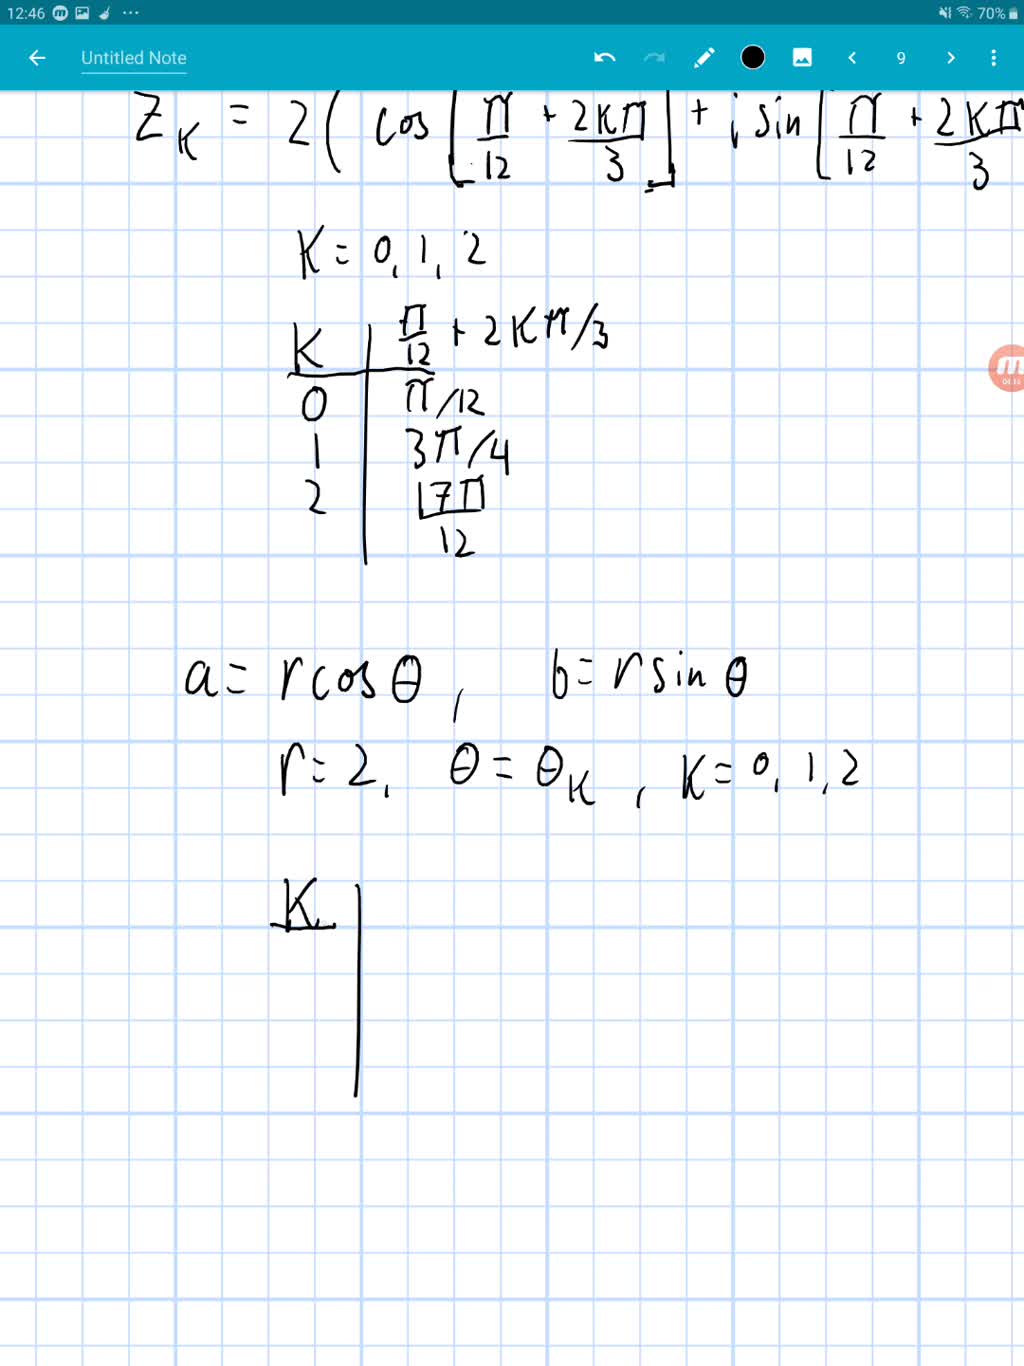 12:46 70%
Untitled Note 9
Z_K = 2( cos[π/12 + 2Kπ/3] + i sin[π/12 + 2Kπ/3
K = 0, 1, 2
K | π/12 + 2Kπ/3
0 | π/12
1 | 3π/4
2 | 17π/12
a = r cos θ, b = r sin θ
r = 2, θ = θ_K, K = 0, 1, 2
K